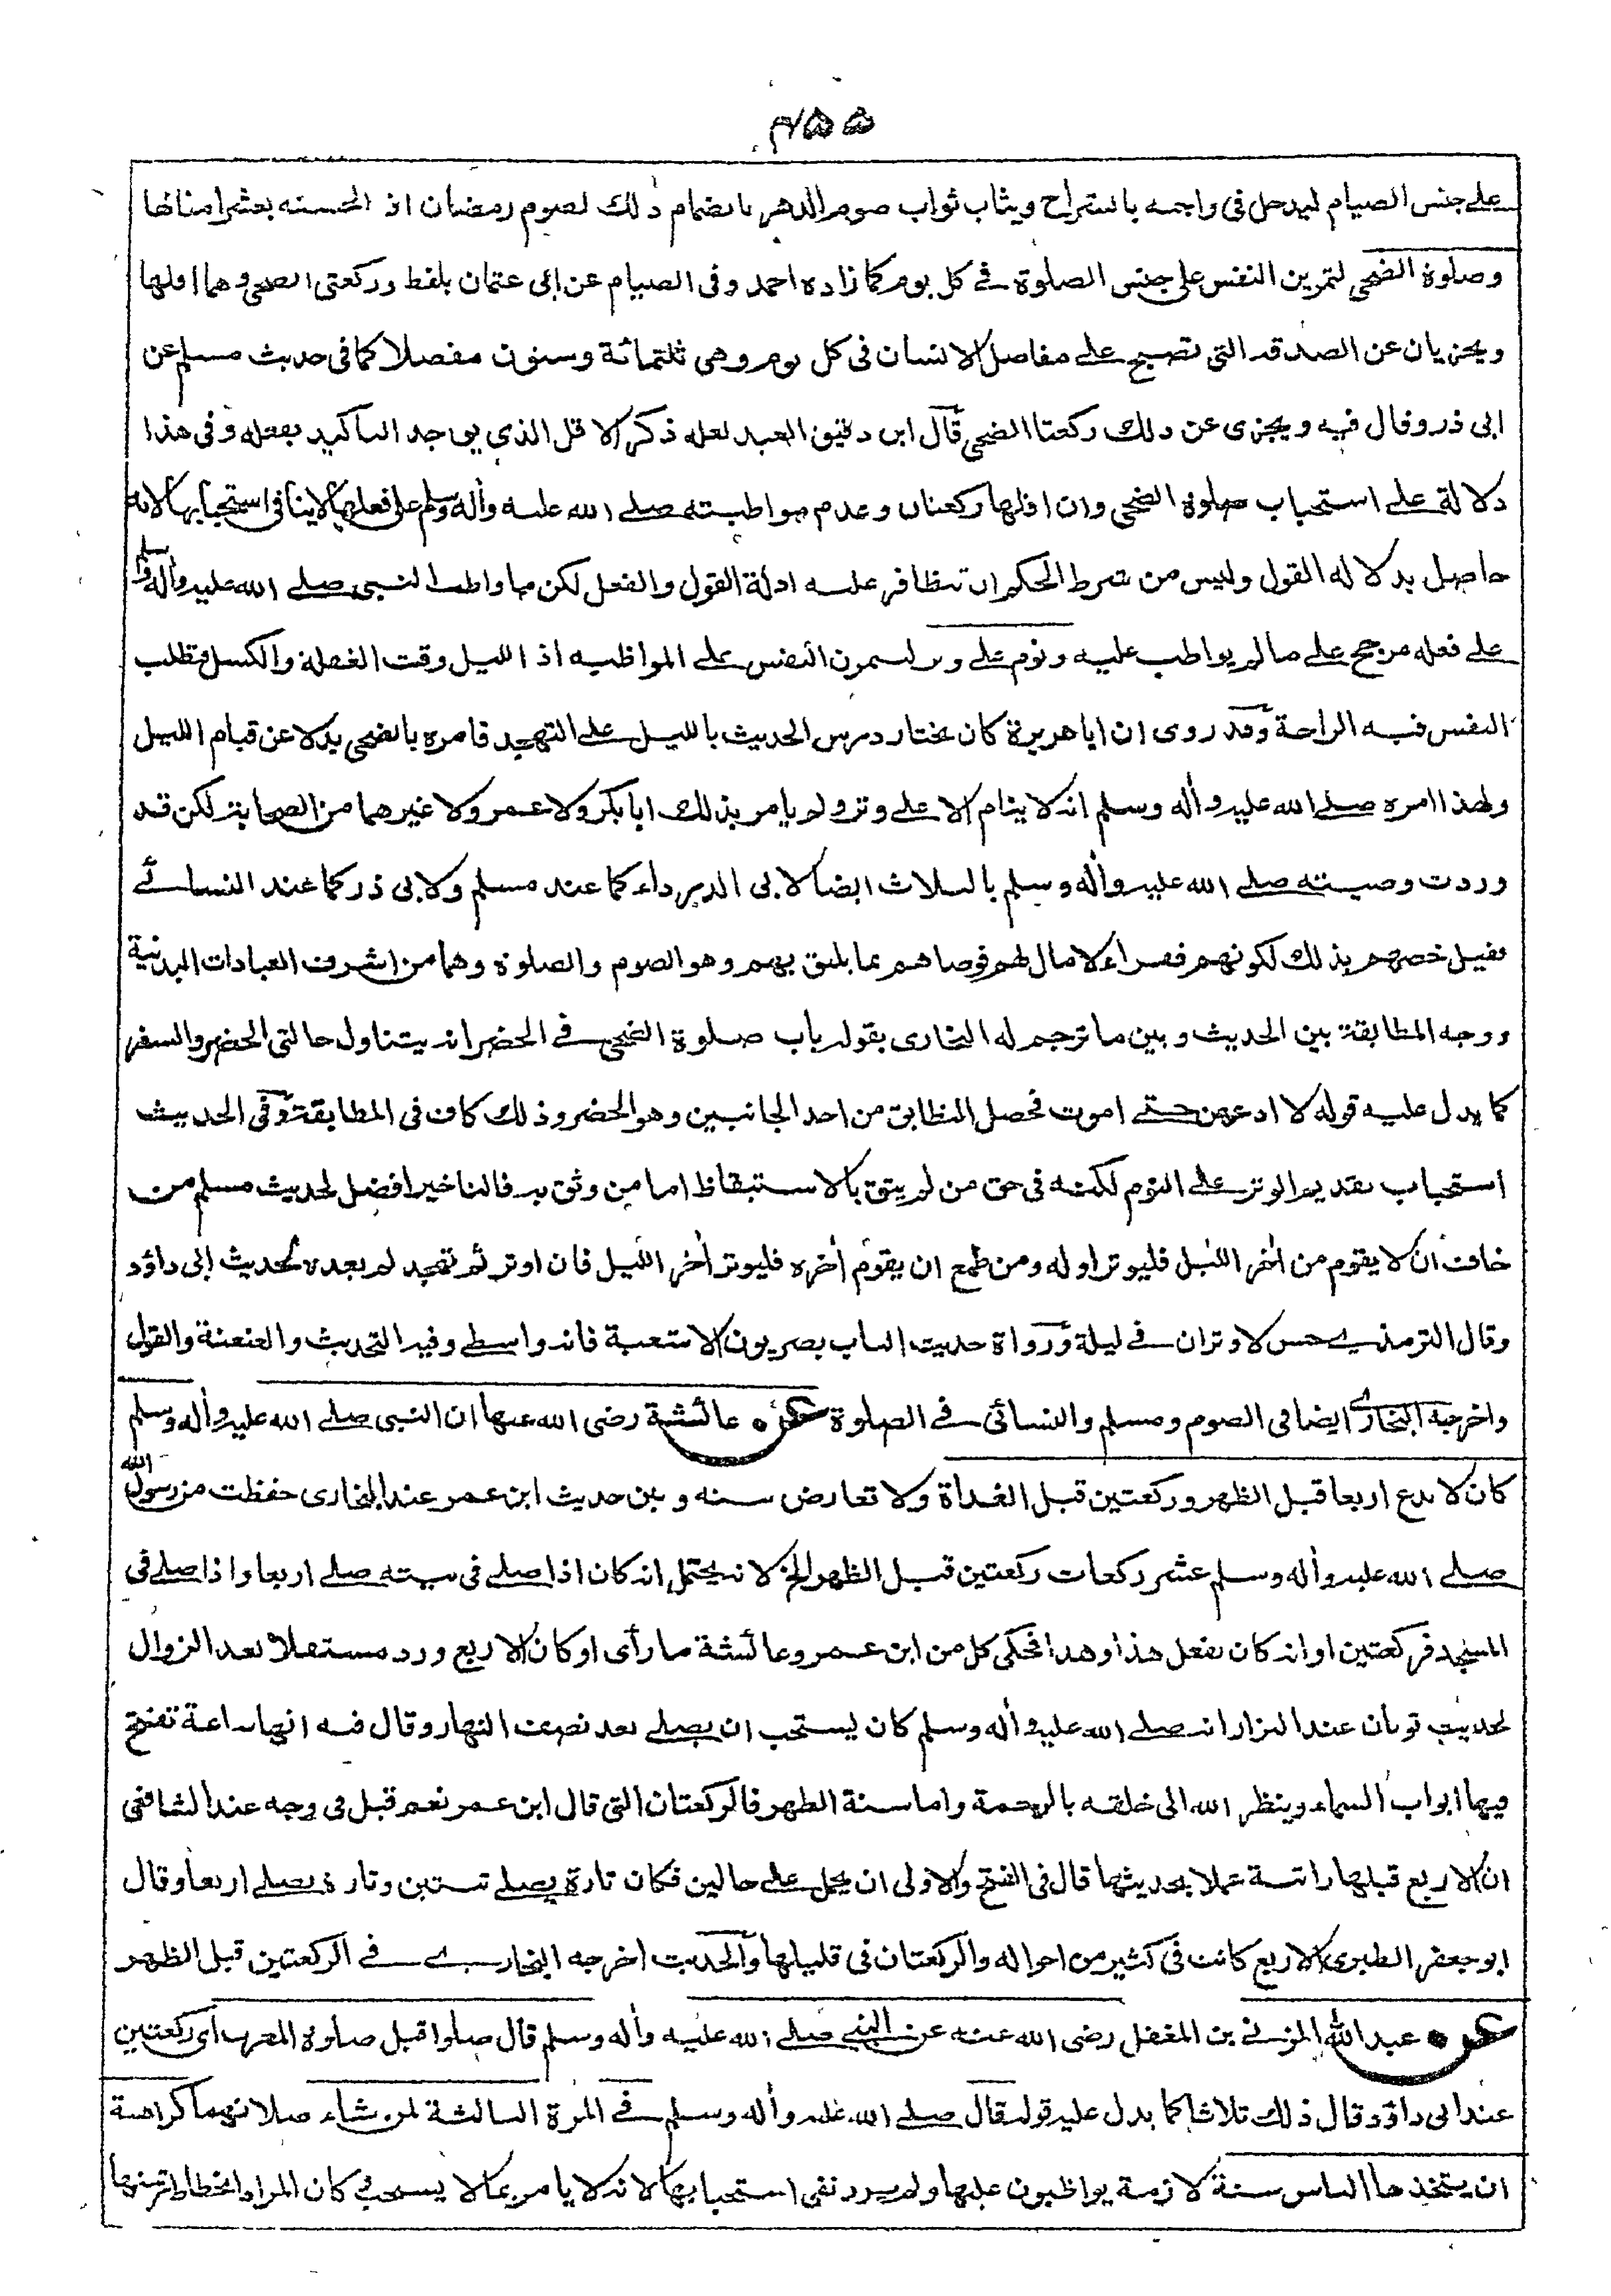 ٤٥٥
على جنس الصيام ليدخل فى واجبه بانشراح ويثاب ثواب صوم الدهر بانضمام ذلك لصوم رمضان اذ الحسنه بعشر امثالها
وصلوة الضحى لتمرين النفس على جنس الصلوة فى كل يوم كما زاده احمد وفى الصيام عن ابى عثمان بلفظ وركعتى الضحى وهما اقلها
ويجزيان عن الصدقه التى تصبح على مفاصل الانسان فى كل يوم وهى ثلثمائة وستون مفصلا كما فى حديث مسلم عن
ابى ذر وقال فيه ويجزى عن ذلك ركعتا الضحى قال ابن دقيق العيد لعله ذكر الاقل الذي يوجد التاكيد بفعله وفى هذا
دلالة على استحباب صلوة الضحى وان اقلها ركعتان وعدم مواظبته صلى الله عليه وأله وسلم على فعلها لاينافى استحبابها لانه
حاصل بدلاله القول وليس من شرط الحكم ان تتظافر عليه ادلة القول والفعل لكن ما واظب النبى صلى الله عليه وأله وسلم
على فعله مرجح على مالم يواظب عليه ونوم على وتر لتمرن النفس على المواظبه اذ الليل وقت الغفلة والكسل فتطلب
النفس فيه الراحة وقد روى ان اباهريرة كان يختار درس الحديث بالليل على التهجد فامره بالضحى بدلا عن قيام الليل
ولهذا امره صلى الله عليه وأله وسلم انه لاينام الاعلى وتر ولم يامر بذلك ابابكر ولاعمر ولاغيرهما من الصحابة لكن قد
وردت وصيته صلى الله عليه وأله وسلم بالثلاث ايضا لابى الدرداء كما عند مسلم ولابى ذر كما عند النسائے
فقيل خصهم بذلك لكونهم فقراء لامال لهم فوصاهم بما يليق بهم وهو الصوم والصلوة وهما من اشرف العبادات البدنية
ووجه المطابقة بين الحديث وبين ما ترجم له البخارى بقوله باب صلوة الضحى فى الحضر انه يتناول حالتى الحضر والسفر
كما يدل عليه قوله لا ادعهن حتى اموت فحصل التطابق من احد الجانبين وهو الحضر وذلك كاف فى المطابقة وفى الحديث
استحباب تقديم الوتر على النوم لكنه فى حق من لم يثق بالاستيقاظ اما من وثق به فالتاخير افضل لحديث مسلم من
خاف ان لايقوم من أخر الليل فليوتر اوله ومن طمع ان يقوم أخره فليوتر أخر الليل فان اوتر ثم تهجد لم يعده لحديث ابى داؤد
وقال الترمذى حسن لاوتران فى ليلة ورواة حديث الباب بصريون الاشعبة فانه واسطى وفيه التحديث والعنعنة والقول
واخرجه البخارى ايضا فى الصوم ومسلم والنسائى فى الصلوة عن عائشة رضى الله عنها ان النبى صلى الله عليه وأله وسلم
كان لايدع اربعا قبل الظهر وركعتين قبل الغداة ولاتعارض بينه وبين حديث ابن عمر عند البخارى حفظت من رسول الله
صلى الله عليه وأله وسلم عشر ركعات ركعتين قبل الظهر الخ لانه يحتمل انه كان اذا صلى فى بيته صلى اربعا واذا صلى فى
المسجد فركعتين او انه كان يفعل هذا وهذا فحكى كل من ابن عمر وعائشة ما رأى او كان الاربع ورد مستقلا بعد الزوال
لحديث ثوبان عند البزار انه صلى الله عليه وأله وسلم كان يستحب ان يصلى بعد نصف النهار وقال فيه انها ساعة تفتح
فيها ابواب السماء وينظر الله الى خلقه بالرحمة واما سنة الظهر فالركعتان التى قال ابن عمر نعم قيل فى وجه عند الشافعى
ان الاربع قبلها راتبة عملا بحديثها قال فى الفتح والاولى ان يحمل على حالين فكان تارة يصلى ثنتين وتارة يصلى اربعا وقال
ابوجعفر الطبرى الاربع كانت فى كثير من احواله والركعتان فى قليلها والحديث اخرجه البخارى فى الركعتين قبل الظهر
عن عبدالله المزنى بن المغفل رضى الله عنه عن النبى صلى الله عليه وأله وسلم قال صلوا قبل صلوة المغرب اى ركعتين
عند ابى داؤد قال ذلك ثلاثا كما يدل عليه قوله قال صلى الله عليه وأله وسلم فى المرة الثالثة لمن شاء صلاتهما كراهة
ان يتخذها الناس سنة لازمة يواظبون عليها ولم يرد نفى استحبابها لانه لايامر بما لايستحب فكان المراد انحطاط مرتبتها